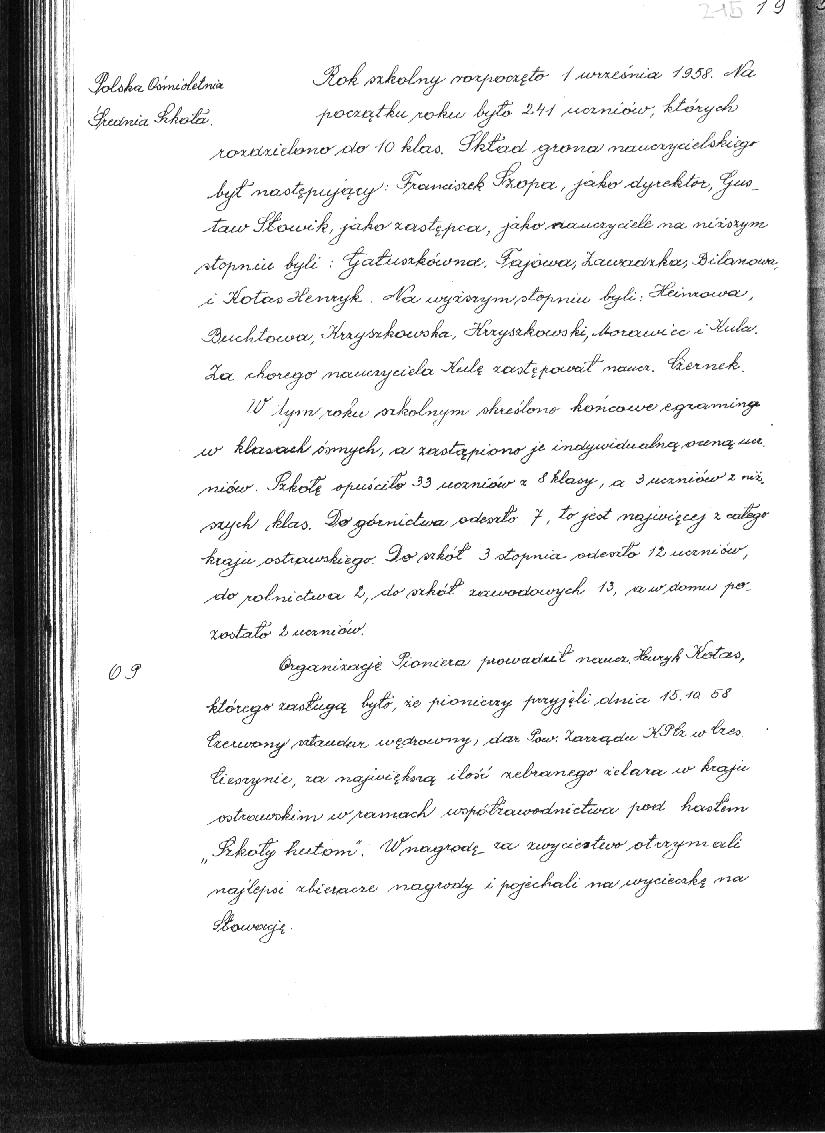 215 19
Polska Ośmioletnia
Średnia Szkoła.
Rok szkolny rozpoczęto 1 września 1958. Na
początku roku było 241 uczniów, których
rozdzielono do 10 klas. Skład grona nauczycielskiego
był następujący: Franciszek Szopa, jako dyrektor, Gus-
taw Słowik, jako zastępca, jako nauczyciele na niższym
stopniu byli: Gałuszkówna, Fajowa, Zawadzka, Bilanowa,
i Kotas Henryk. Na wyższym stopniu byli: Heinzowa,
Buchtowa, Krzyszkowska, Krzyszkowski, Morawiec i Kula.
Za chorego nauczyciela Kulę zastępował naucz. Czernek.
W tym roku szkolnym skreślono końcowe egzaminy
w klasach ósmych, a zastąpiono je indywidualną oceną ucz
niów. Szkołę opuściło 33 uczniów z 8 klasy, a 3 uczniów z niż
szych klas. Do górnictwa odeszło 7, to jest najwięcej z całego
kraju ostrawskiego. Do szkół 3 stopnia odeszło 12 uczniów,
do rolnictwa 2, do szkół zawodowych 13, a w domu po-
zostało 2 uczniów.
OP
Organizację Pioniera prowadził naucz. Henryk Kotas,
którego zasługą było, że pionierzy przyjęli dnia 15.10.58
Czerwony sztandar wędrowny, dar Pow. Zarządu KPCz w Czes.
Cieszynie, za największą ilość zebranego żelaza w kraju
ostrawskim w ramach współzawodnictwa pod hasłem
„Szkoły hutom". W nagrodę za zwycięstwo otrzymali
najlepsi zbieracze nagrody i pojechali na wycieczkę na
Słowację.